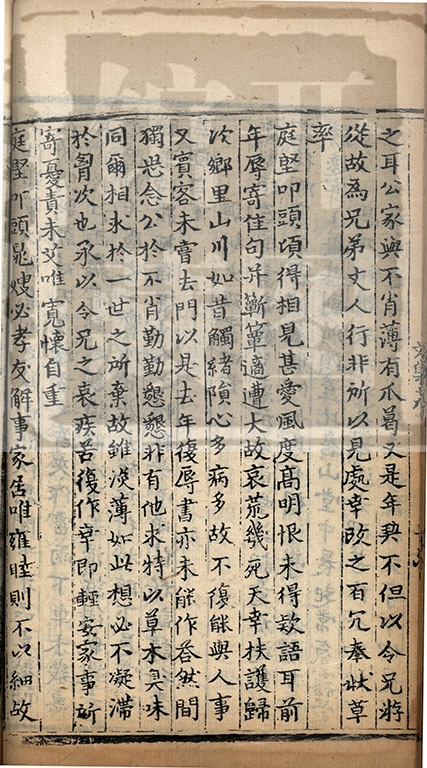 之耳公家與不肖薄有瓜葛又是年契不但以令兄游
從故為兄弟丈人行非所以見處幸改之百冗奉狀草
率
庭堅叩頭頃得相見甚愛風度高明恨未得款語耳前
年辱寄佳句并蘄簟適遭大故哀荒幾死天幸扶護歸
次鄉里山川如昔觸緒隕心多病多故不復能與人事
又賓客未嘗去門以是去年復辱書亦未能作荅然間
獨思念公於不肖勤勤懇懇非有他求特以草木臭味
同爾相求於一世之所棄故雖淡薄如此想必不凝滯
於胷次也承以令兄之衰疾苦復作幸即輕安家事所
寄憂責未艾唯寬懷自重
庭堅叩頭晁嫂必孝友解事家居唯雍睦則不以細故